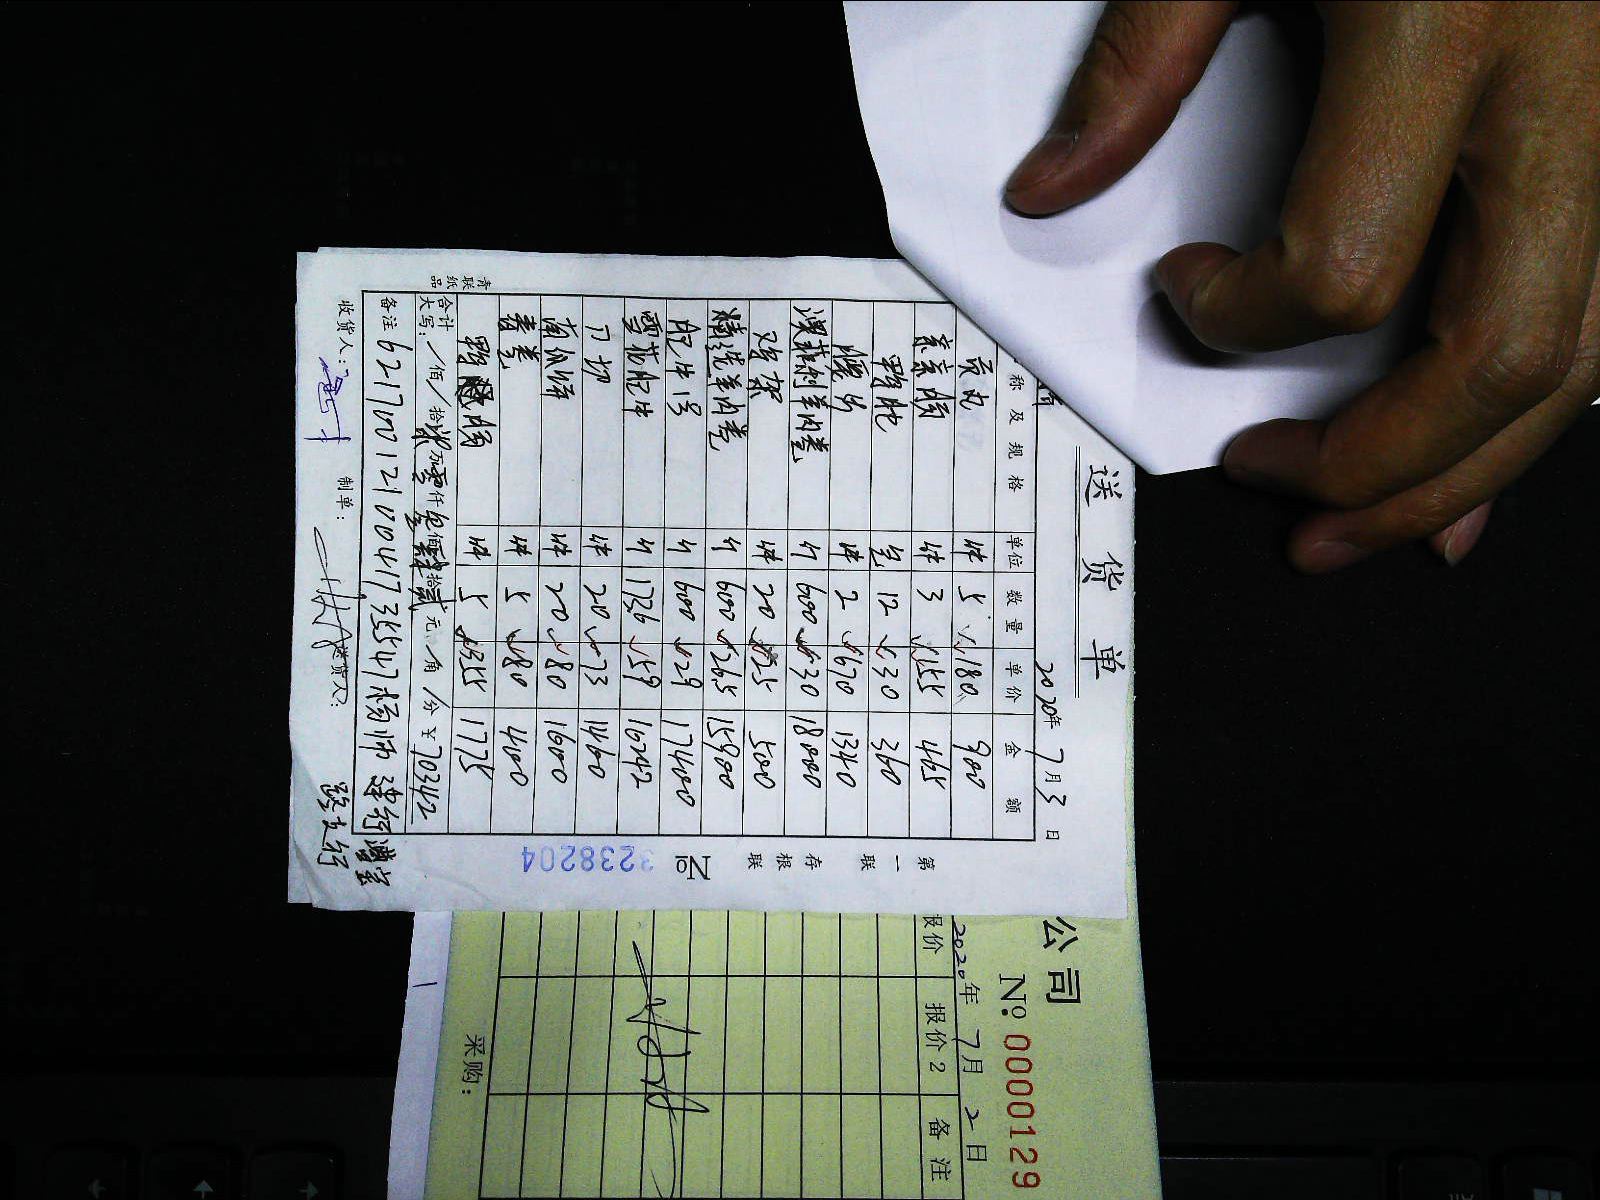 送货单
2020年7月3日
称及规格 单位 数量 单价 金额
贡丸 件 5 180 900
亲亲肠 件 3 155 465
鸭肫 包 12 30 360
件 2 670 1340
澳菲利羊肉卷 斤 600 30 18000
鸡架 件 20 25 500
精选羊肉卷 斤 600 26.5 15900
肥牛1号 斤 600 29 17400
雪花肥牛 斤 59
件 20 73 1460
南瓜饼 件 20 80 1600
春卷 件 5 80 400
鸭肠 件 5 355 1775
合计
大写: 佰 拾柒万零仟叁佰肆拾贰元 角 分 ¥ 70342
备注
收货人: 制单: 送货人:
青联纸品
第一联 存根联 No 3238204
公司
No.0000129
2020年7月2日
报价 报价2 备注
采购: